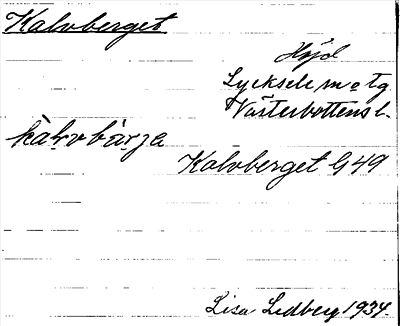 Kalvberget
Höjd
Lycksele m o tg
Västerbottens l.
kàḷvbàrja
Kalvberget G49
Lisa Lidberg 1934.